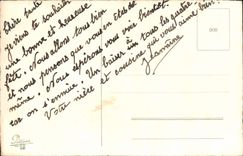 Chère tante
Je viens te souhaiter
une bonne et heureuse
fête. Nous allons tous bien
et nous pensons que vous en êtes de
même. Nous espérons vous voir bientôt
car on s'ennuie. Un baiser à tous les quatre.
Votre nièce et cousine qui vous aime bien.